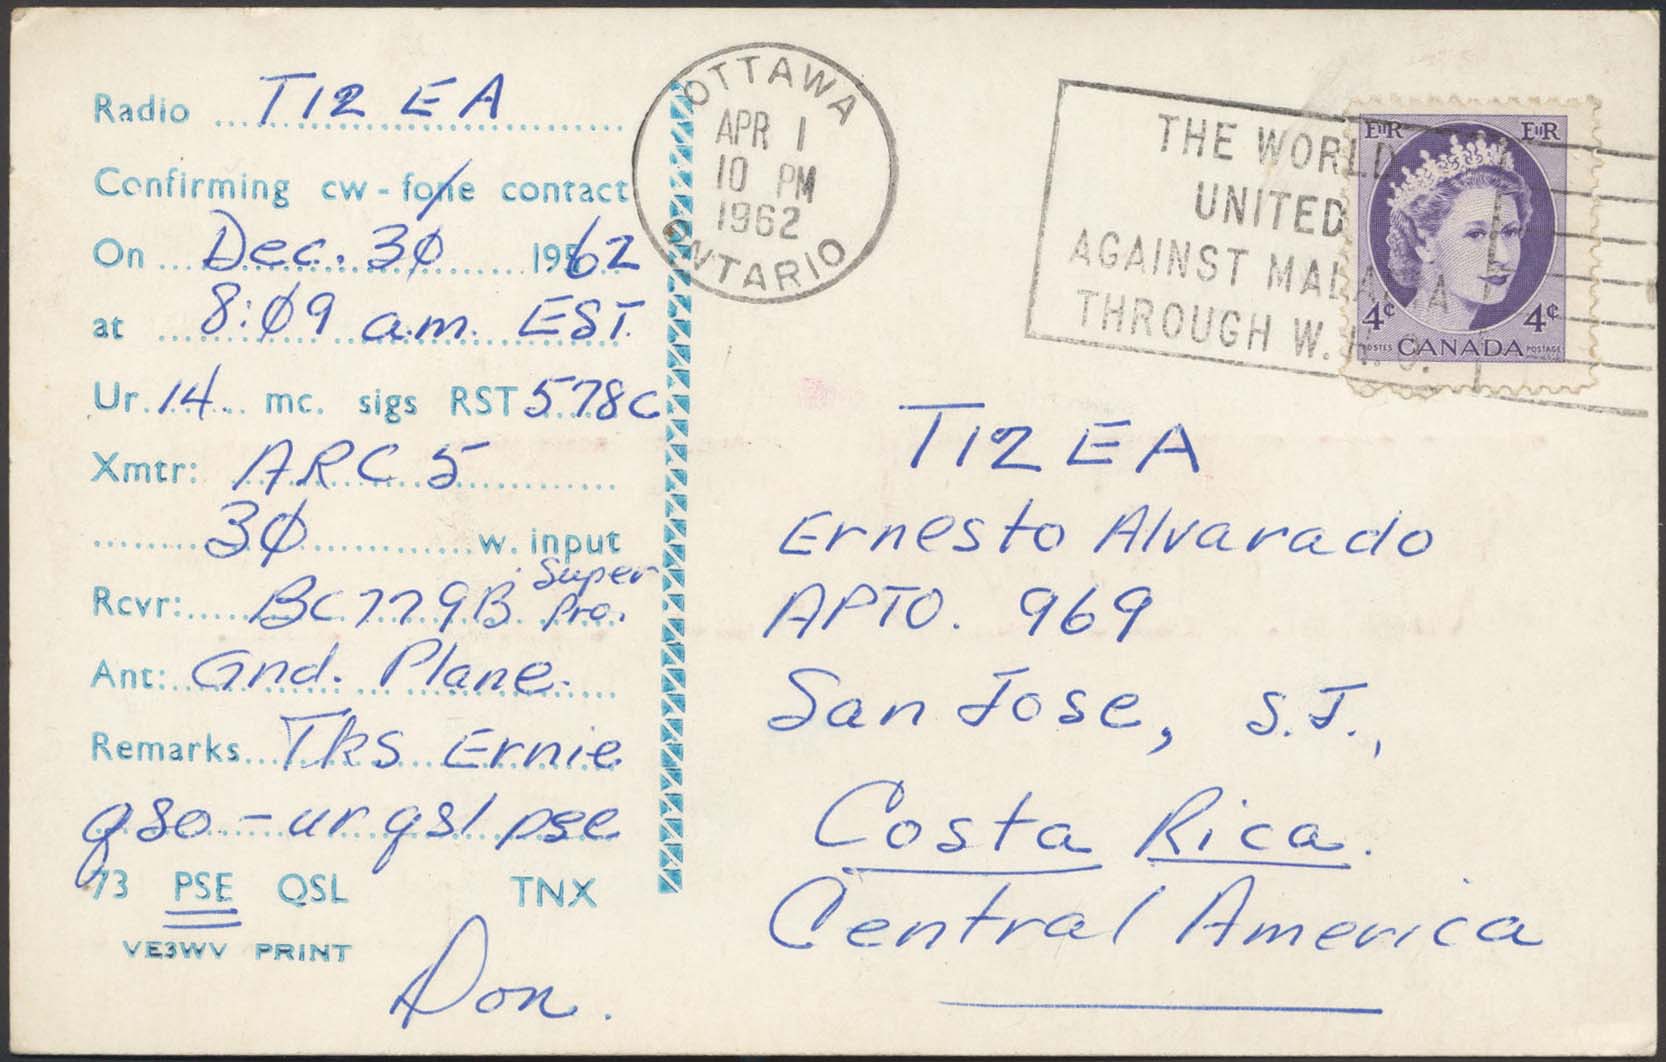 Radio TI2 EA
Confirming cw - fone contact
On Dec. 30 1962
at 8:09 a.m. EST.
Ur. 14 mc. sigs RST 578C
Xmtr: ARC 5
30 w. input
Rcvr: BC779B Super Pro.
Ant: Gnd. Plane.
Remarks Tks Ernie
qso - ur qsl pse
73 PSE QSL TNX
VE3WV PRINT
Don.
OTTAWA
APR 1
10 PM
1962
ONTARIO
THE WORLD
UNITED
AGAINST MALARIA
THROUGH W.H.O.
EIIR EIIR
4¢ 4¢
POSTES CANADA POSTAGE
TI2 EA
Ernesto Alvarado
APTO. 969
San Jose, S.J.,
Costa Rica.
Central America